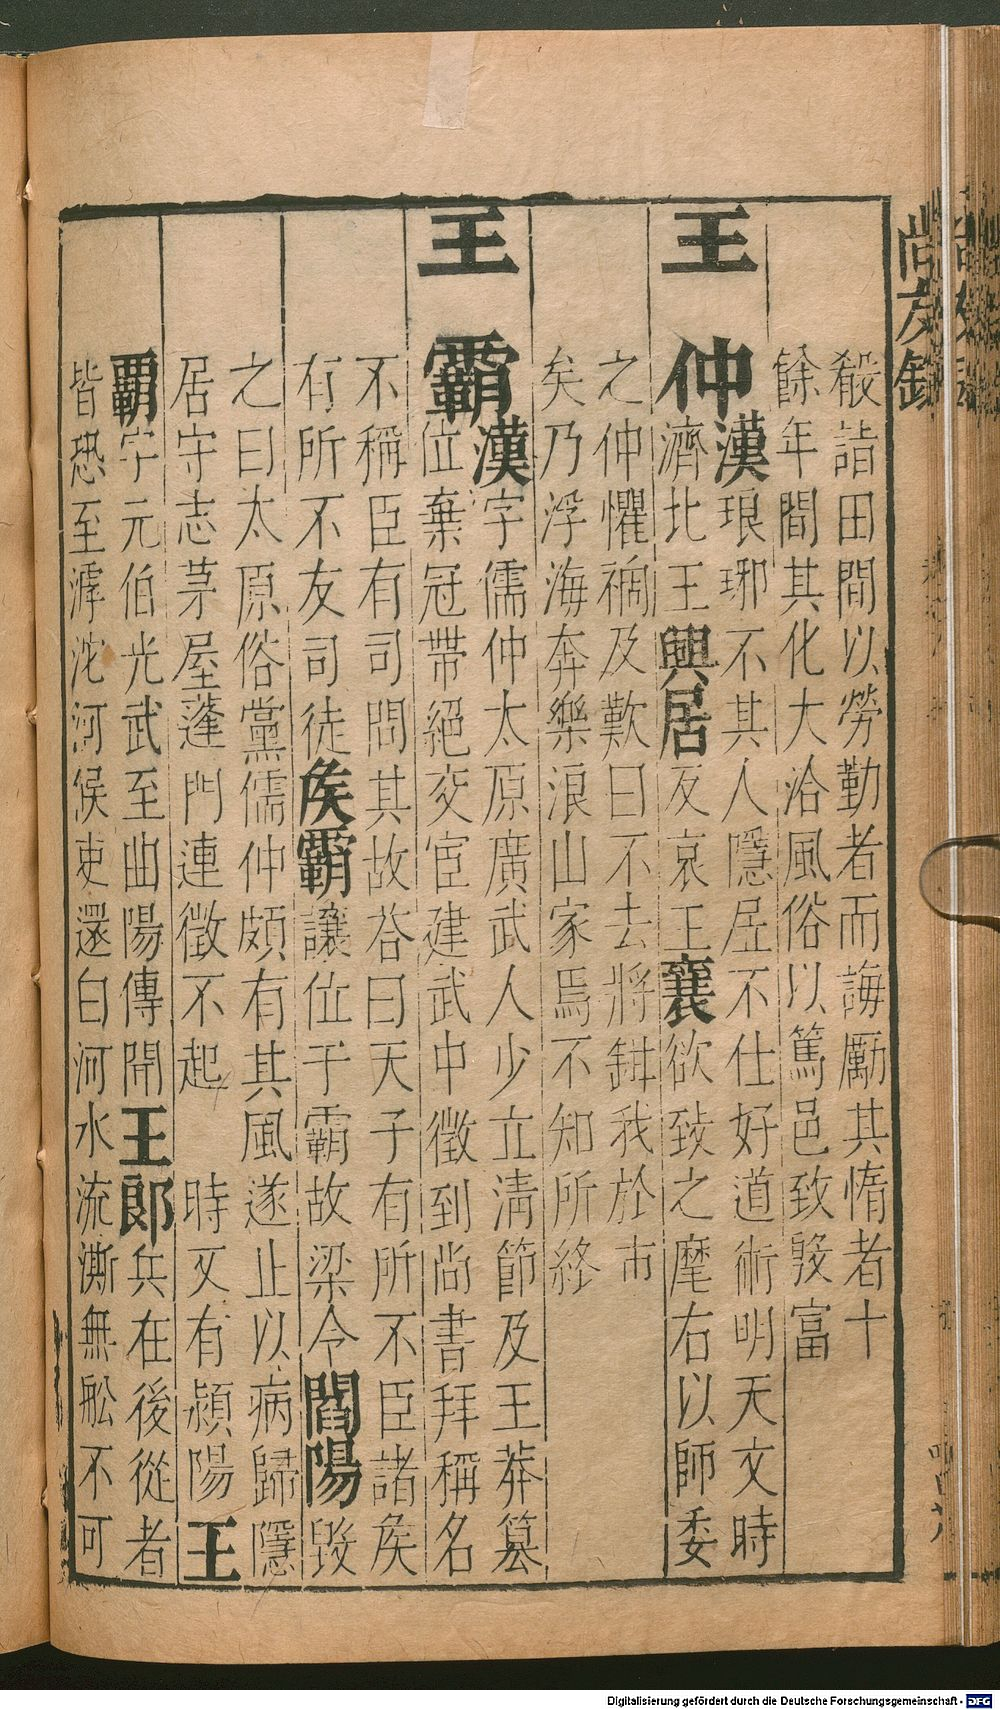 尚友錄
殽詣田間以勞勤者而誨勵其惰者十
餘年間其化大洽風俗以篤邑致毀富
王仲漢琅琊不其人隱居不仕好道術明天文時
濟北王興居反哀王襄欲致之麾右以師委
之仲懼禍及歎曰不去將鉗我於市
矣乃浮海奔樂浪山家焉不知所終
王霸漢字儒仲太原廣武人少立清節及王莽篡
位棄冠帶絕交宦建武中徵到尚書拜稱名
不稱臣有司問其故荅曰天子有所不臣諸矦
有所不友司徒矦霸讓位于霸故梁令閻陽毀
之曰太原俗黨儒仲頗有其風遂止以病歸隱
居守志茅屋蓬門連徵不起 時又有潁陽王
霸字元伯光武至曲陽傳聞王郎兵在後從者
皆恐至滹沱河候吏還白河水流澌無舩不可
Digitalisierung gefördert durch die Deutsche Forschungsgemeinschaft - DFG